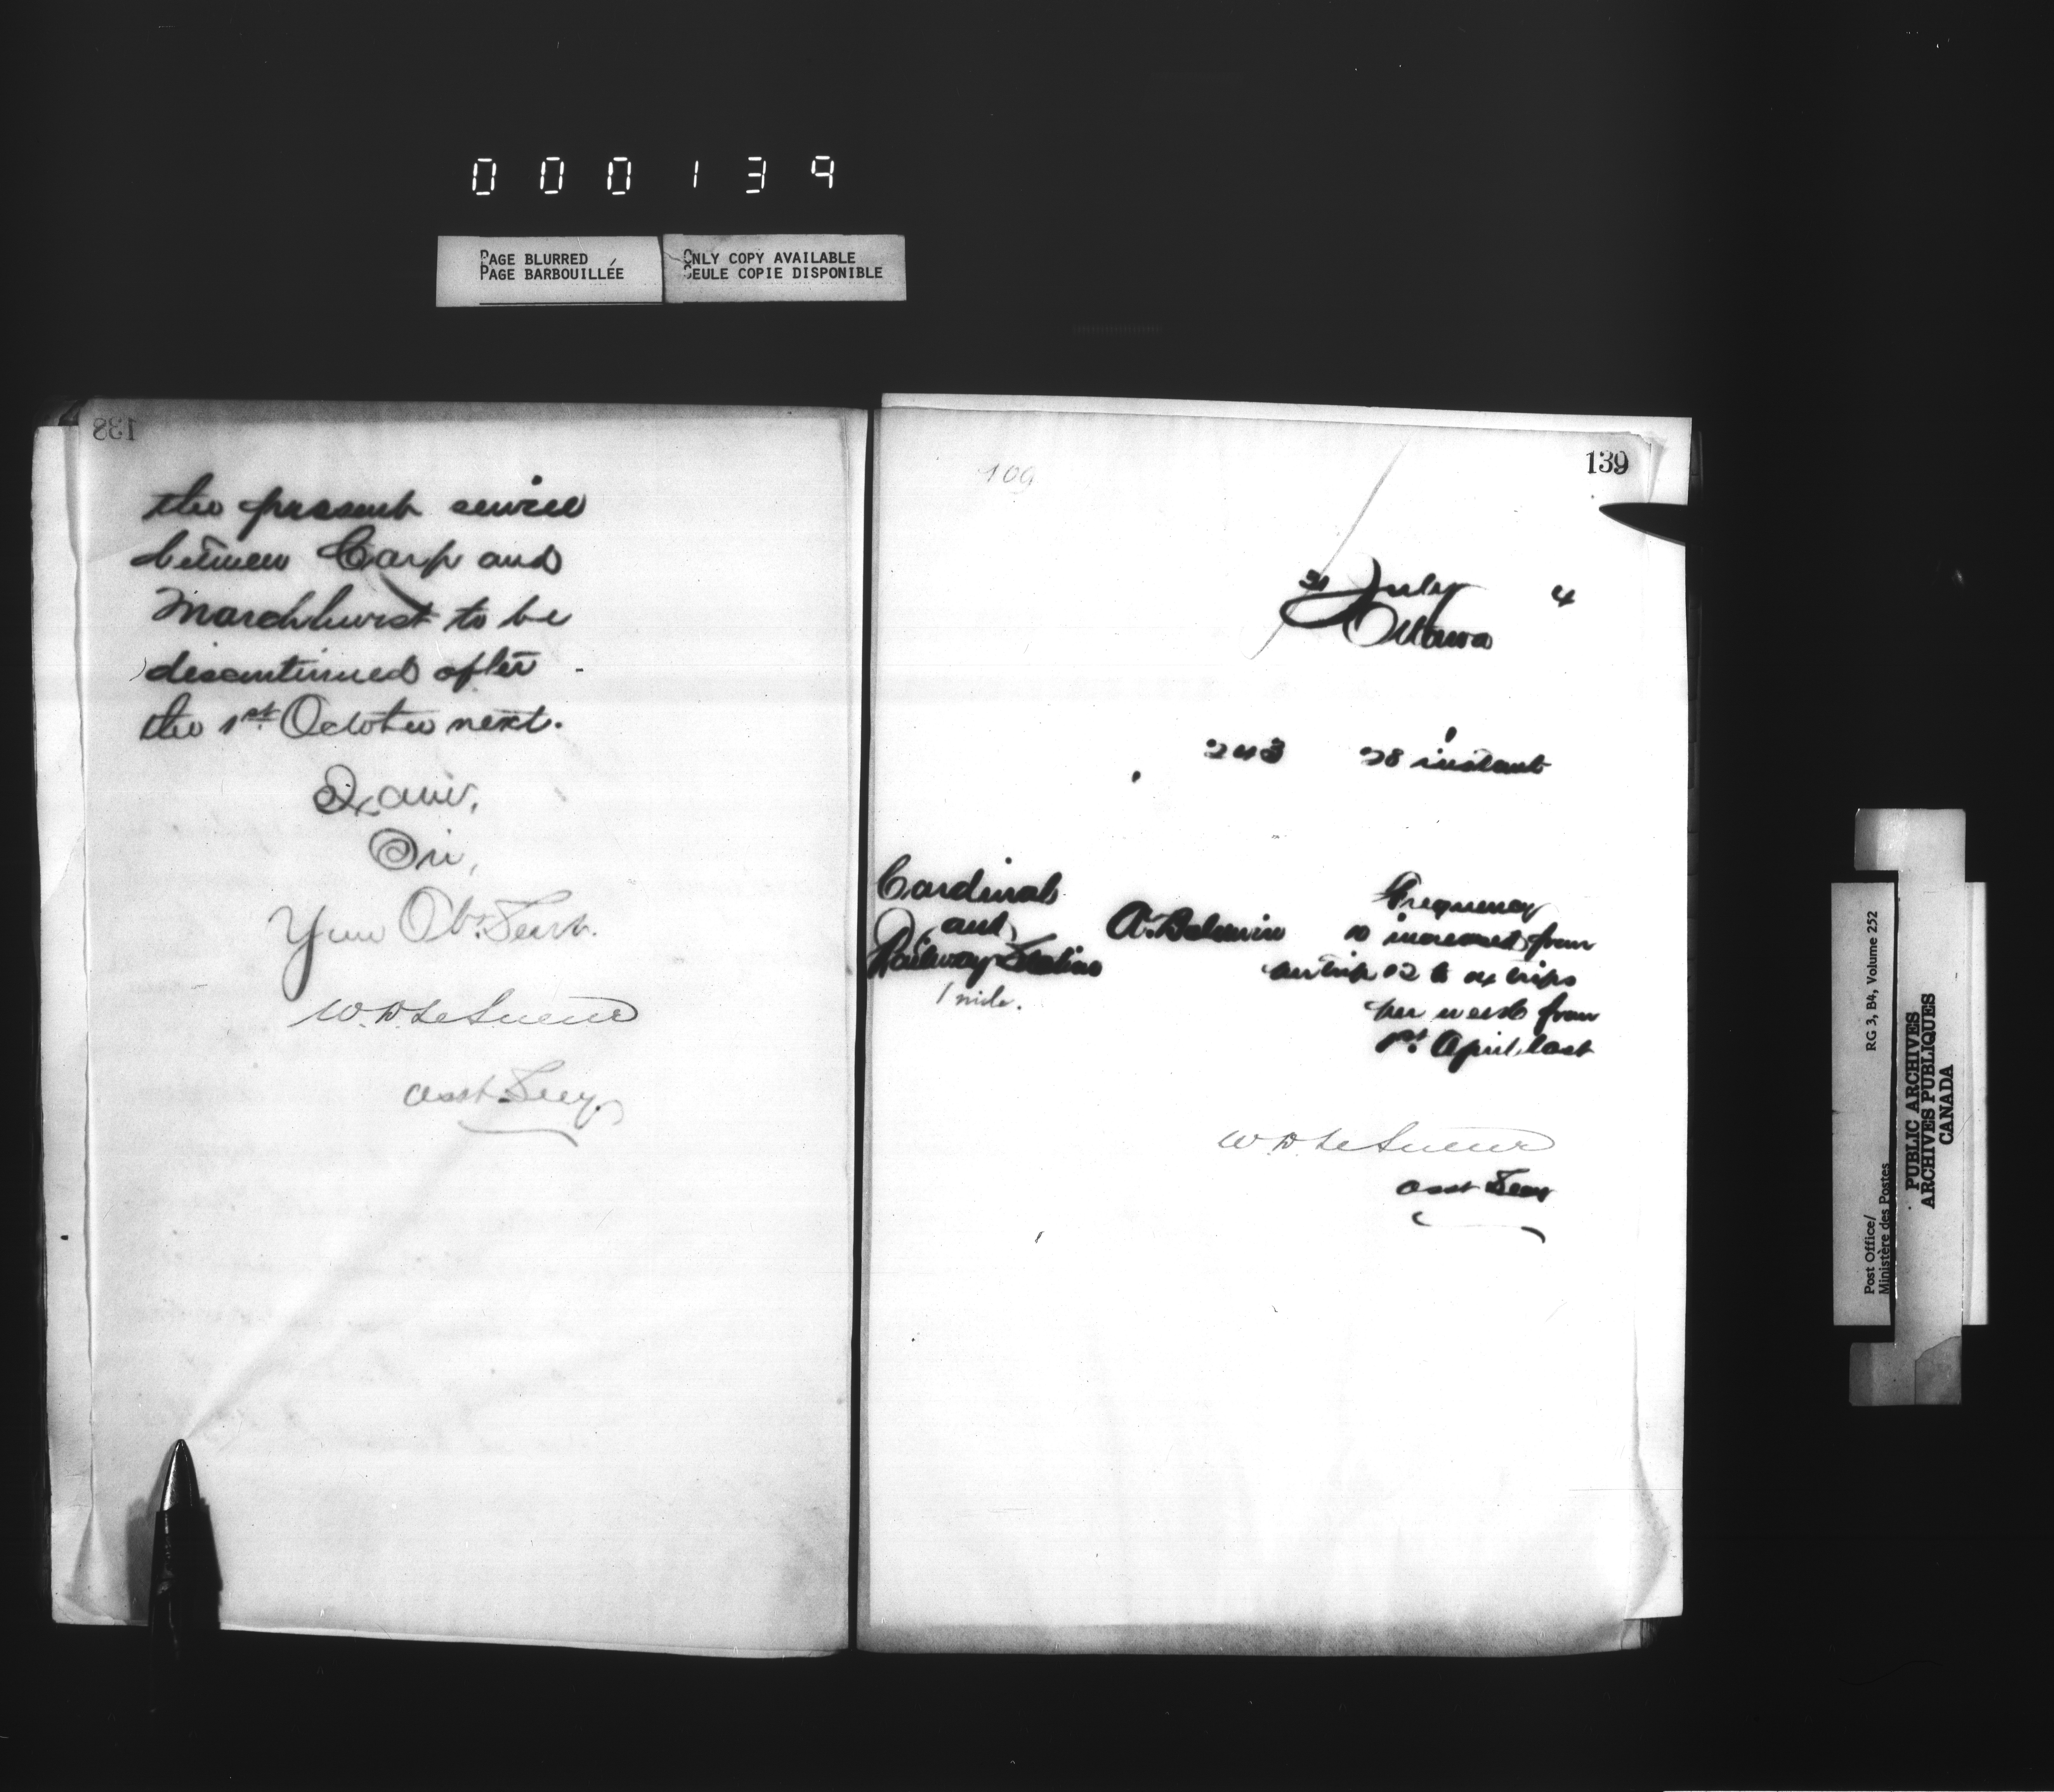 000139
PAGE BLURRED
PAGE BARBOUILLÉE
ONLY COPY AVAILABLE
SEULE COPIE DISPONIBLE
138
the present service
between Carp and
Marchhurst to be
discontinued after
the 1st October next.
I am,
Sir,
Your Ob. Servt.
W. D. LeSueur
Asst Secy.
109
139
31 July 4
Ottawa
243 28 instant
Cardinal
and
Railway Station
1 mile.
A. Baldwin
Frequency
increased from
12 to 24 trips
per week from
1st April last
W. D. LeSueur
Asst Secy
Post Office/
Ministère des Postes
RG 3, B4, Volume 252
PUBLIC ARCHIVES
ARCHIVES PUBLIQUES
CANADA